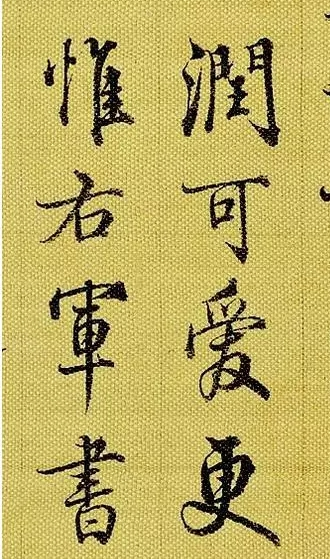 潤可愛更
惟右軍書